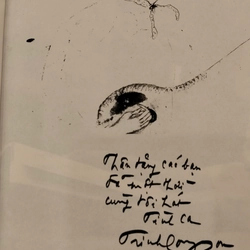 Thân tặng các bạn
để một thời
cùng tôi hát
Tình ca
Trịnh Công Sơn